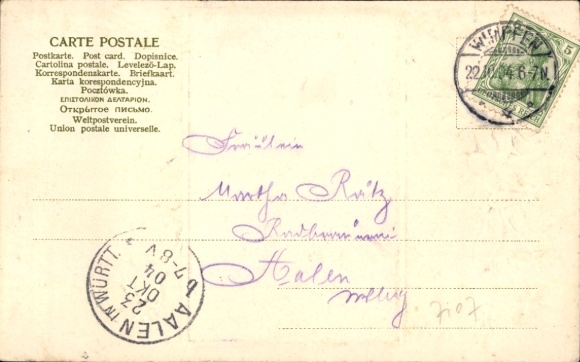 CARTE POSTALE
Postkarte. Post card. Dopisnice.
Cartolina postale. Levelező-Lap.
Korrespondenzkarte. Briefkaart.
Karta korespondencyjna.
Pocztówka.
ΕΠΙΣΤΟΛΙΚΟΝ ΔΕΛΤΑΡΙΟΝ.
Открытое письмо.
Weltpostverein.
Union postale universelle.
WIMPFEN
22.10.04.6-7N.
5
Fräulein
Martha Rätz
Radbrauerei
Aalen
AALEN IN WÜRTT.
23
OKT
04
7-8V
7107